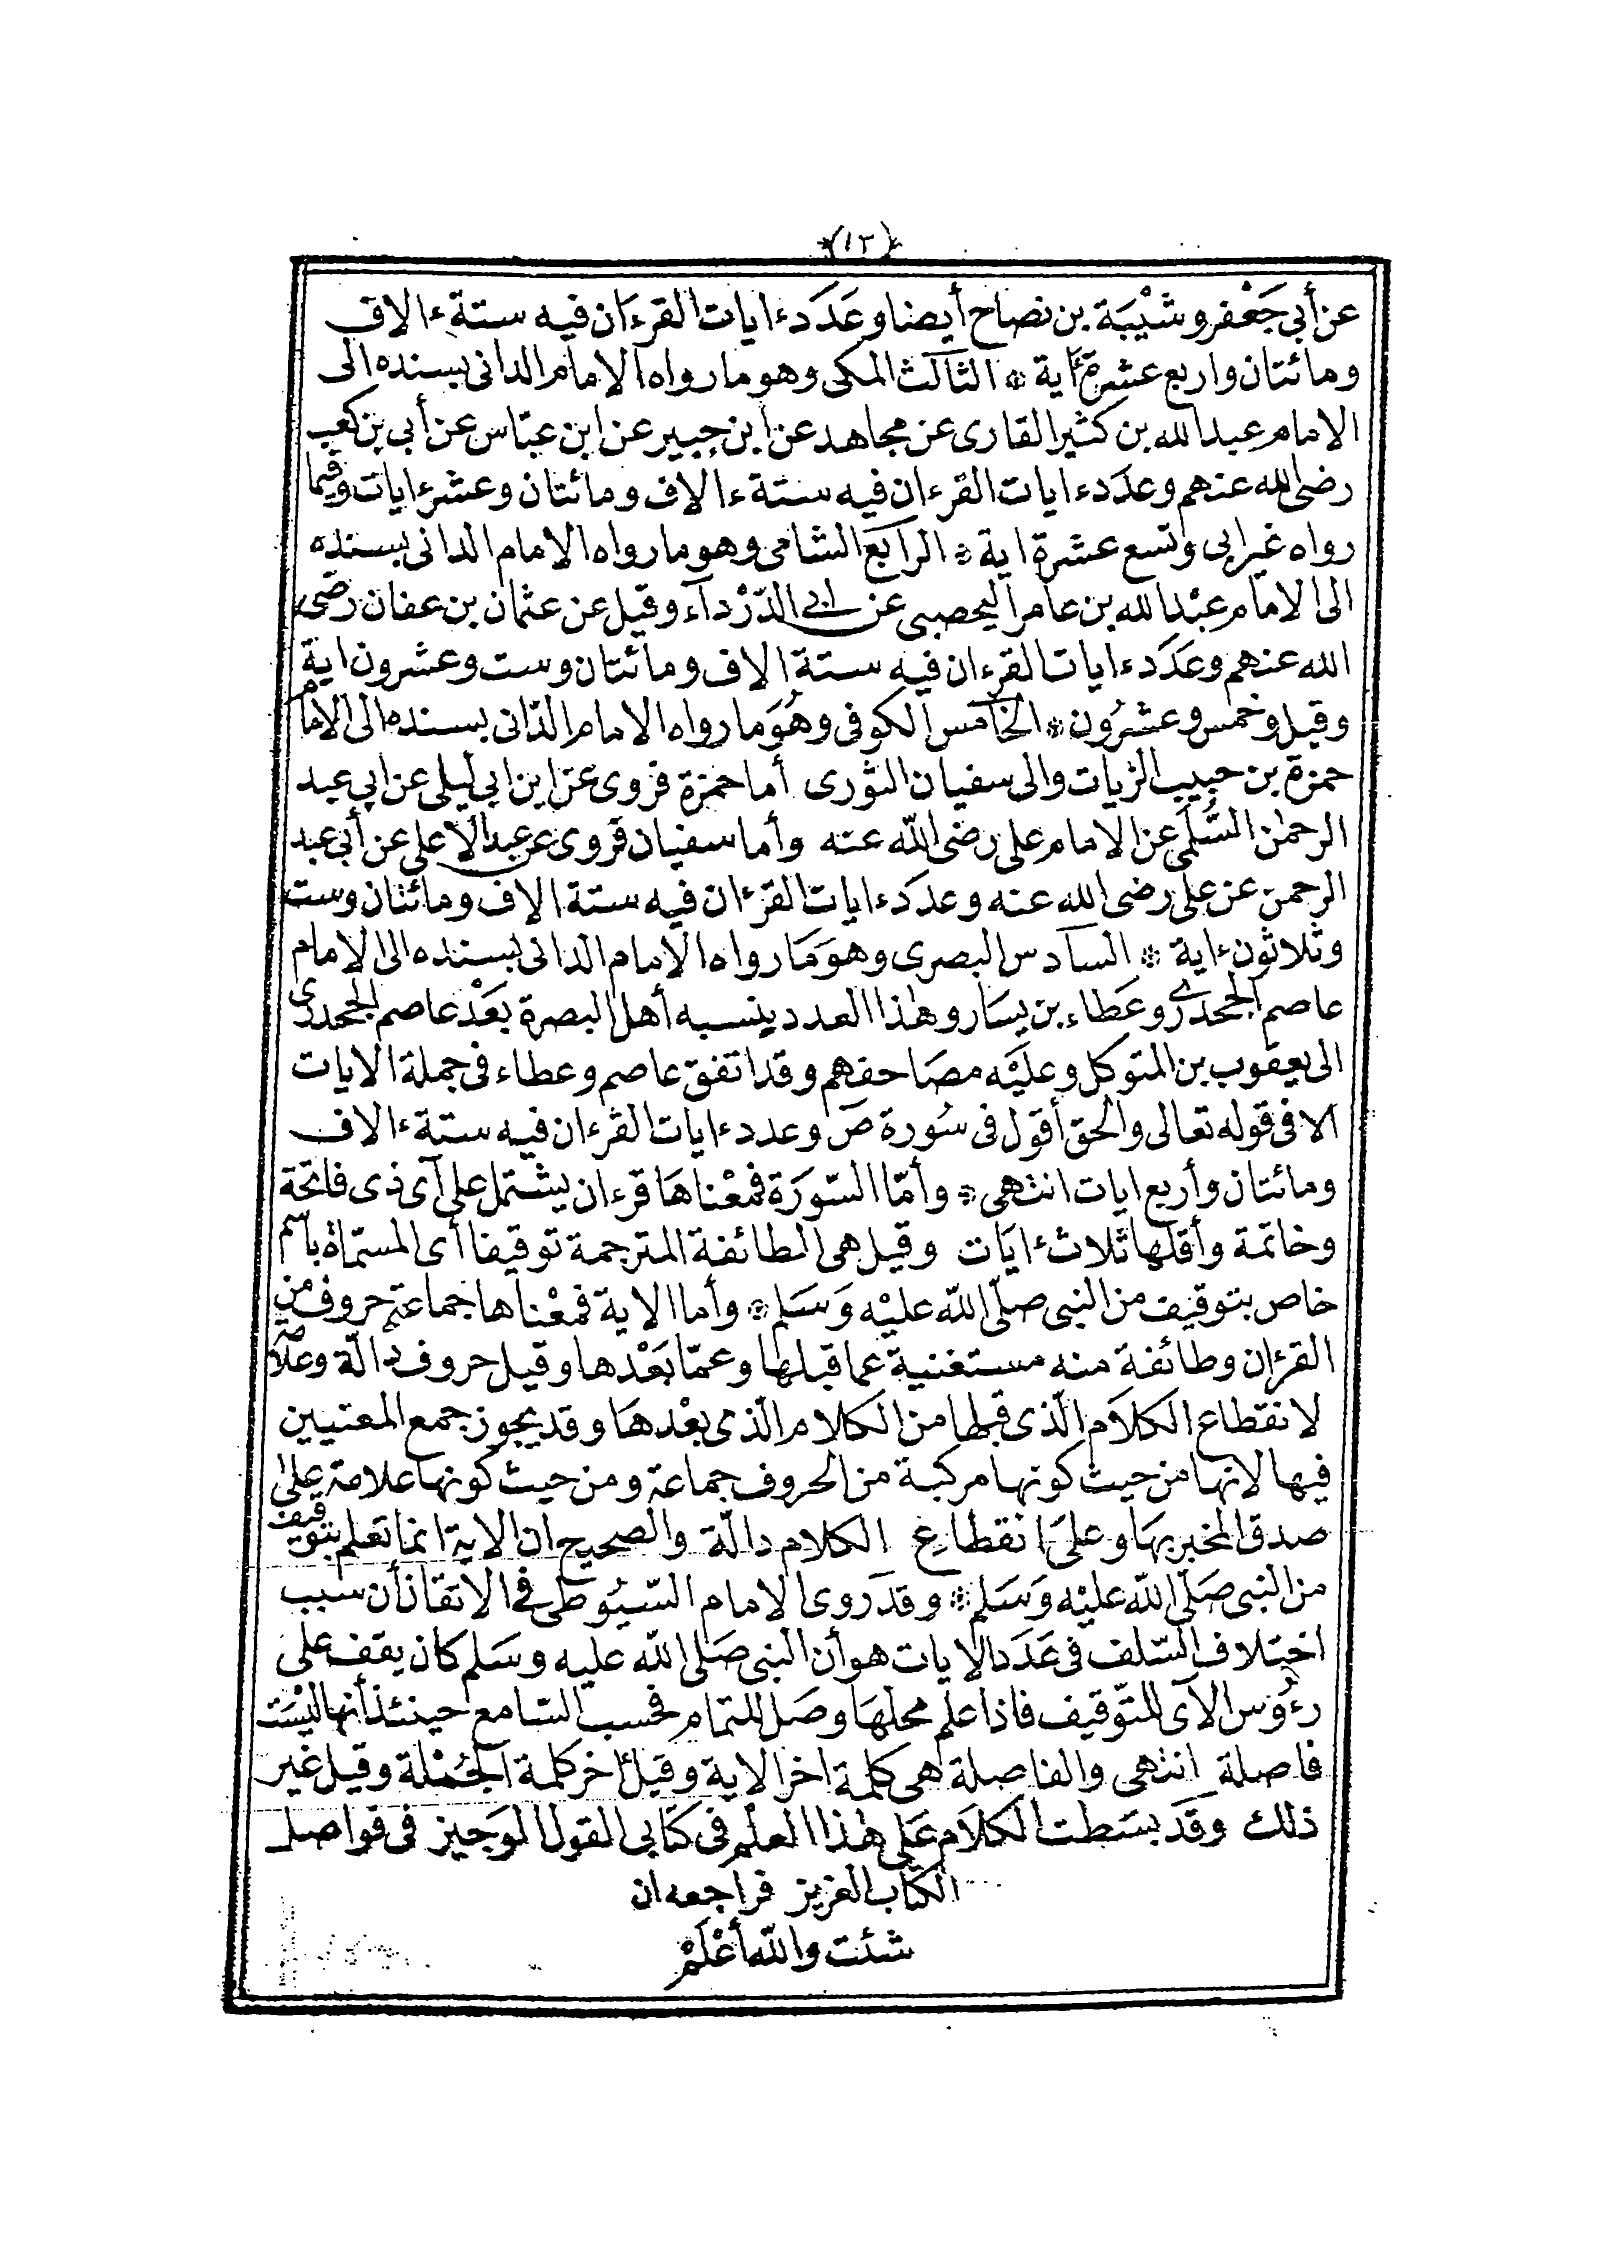 (١٣)
عن أبي جَعْفر وشَيْبَة بن نصاح أيضا وعَدَد ءايات القرءان فيه ستة ءالاف
ومائتان واربع عشرة ءاية * الثالث المكى وهو ما رواه الامام الدانى بسنده الى
الامام عبدالله بن كثير القارى عن مجاهد عن ابن جبير عن ابن عبّاس عن أبي بن كعب
رضى الله عنهم وعدَد ءايات القرءان فيه ستة ءالاف ومائتان وعشر ءايات وفيما
رواه غير ابى وتسع عشرة اية * الرابع الشامى وهو ما رواه الامام الدانى بسنده
الى الامام عبْدالله بن عامر اليحصبى عن ابى الدّرْدآء وقيل عن عثمان بن عفان رضى
الله عنهم وعَدَد ءايات القرءان فيه ستة الاف ومائتان وست وعشرون اية
وقيل وخمس وعشرُون * الخامس الكوفى وهُوَ ما رواه الامام الدّانى بسنده الى الامام
حمزة بن حبيب الزيات والى سفيان الثورى أما حمزة فروى عن ابن ابى ليلى عن ابى عبد
الرحمٰن السُّلَمى عن الامام على رضى اللّه عنه وأما سفيان فروى عن عبد الاعلى عن أبى عبد
الرحمن عن على رضى الله عنه وعدَد ءايات القرءان فيه ستة الاف ومائتان وست
وثلاثون ءاية * السادس البصرى وهوَ مَا رواه الامام الدانى بسنده الى الامام
عاصم الجحدرى وعَطاء بن يسَار وهٰذا العدد ينسبه أهل البصرة بعَدْ عاصم الجحدرى
الى يعقوب بن المتوكل وعليْه مصَاحفهم وقد اتفق عاصم وعطاء فى جملة الايات
الا فى قوله تعالى والحق أقول فى سُورة صَ وعدد ءايات القرءان فيه ستة ءالاف
ومائتان وأربع ايات انتهى * وأمّا السّورَة فمعْناهَا قرءان يشتمل على آى ذى فاتحة
وخاتمة وأقلها ثلاث ءايَات وقيل هى الطائفة المترجمة توقيفا أى المسمّاة باسم
خاص بتوقيف من النبى صلّى اللّه عليْه وَسَلم * وأما الاية فمعْناها جماعة حروف من
القرءان وطائفة منه مستغنية عما قبلها وعمّا بعَدْها وقيل حروف دالّة وعلامة
لانقطاع الكلاَم الّذى قبلها من الكلام الّذى بعْدهَا وقد يجوز جمع المعنيين
فيها لانها من حيث كونها مركبة من الحروف جماعة ومن حيث كونها علامة على
صدق المخبر بهَا وعلىَ انقطاعِ الكلام دالّة والصحيح ان الاية انما تعلم بتوقيف
من النبى صَلّى اللّه عليْه وَسَلم * وقد روى الامام السّيُوطى فى الاتقان أن سبب
اختلاف السّلف فى عَدَد الايات هو أن النبى صَلى اللّه عليه وسَلم كان يقف على
رءُوس الآى للتّوقيف فاذا علم محلهَا وصَل للتمام فحسب السّامع حينئذ أنها ليْسَت
فاصلة انتهى والفاصلة هى كلمة اخر الاية وقيل اخر كلمة الجُمْلة وقيل غير
ذلك وقَد بسَطت الكلاَم عَلى هٰذا العلْم فى كتابى القول الوَجيز فى فواصل
الكتاب العزيز فراجعه ان
شئت واللّه أعْلَمْ